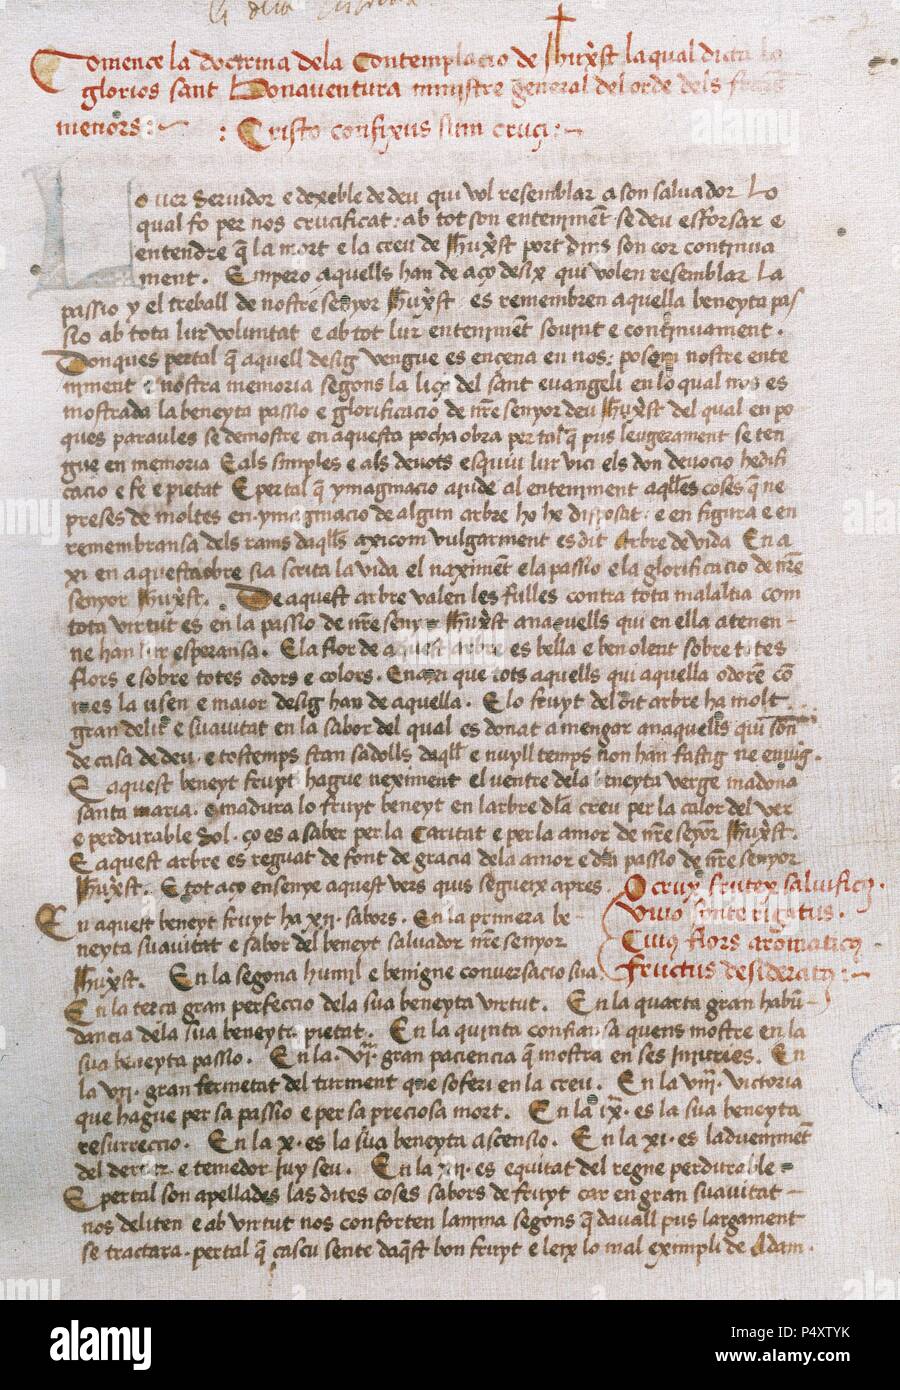 Comence la doctrina dela Contemplacio de Jhuxst laqual dicta lo
glorios sant Bonaventura ministre general del orde dels frares
menors :~ : Cristo confixus sum cruçi :~
Lo ver servidor e dexeble de deu qui vol resemblar a son salvador Lo
qual fo per nos crucificat · ab tot son entenimēt se deu esforsar e
entendre q̄ la mort e la creu de Jhuxst port dins son cor continua
ment . Empero aquells han de aço desix qui volen resemblar la
passio y el treball de nostre senyor Jhuxst es remembren aquella beneyta pas
sio ab tota lur voluntat e ab tot lur entenimēt sovint e continuament .
Donques pertal q̄ aquell desig vengue es encena en nos : posem nostre ente
niment e nostra memoria segons la liço del sant evangeli en lo qual nos es
mostrada la beneyta passio e glorificacio de nr̄e senyor deu Jhuxst del qual en po
ques paraules se demostre en aquesta pocha obra per tal q̄ pus leugerament se ten
gue en memoria E als simples e als devots esquiu lur vici els don devocio hedifi
cacio e fe e pietat E pertal q̄ ymaginacio aiude al enteniment aq̄lles coses q̄ he
preses de moltes en ymaginacio de algun arbre ho he disposat : e en figura e en
remembransa dels rams daq̄ll axicom vulgarment es dit Arbre de vida En a
xi en aquest arbre sia scrita la vida el naximēt e la passio e la glorificacio de nr̄e
senyor Jhuxst . De aquest arbre valen les fulles contra tota malaltia com
tota virtut es en la passio de nr̄e seny= Jhuxst an aquells qui en ella atenen-
ne han lur esperansa . E la flor de aquest arbre es bella e benolent sobre totes
flors e sobre totes odors e colors . que tots aquells qui aquella odorē co
mes la usen e maior desig han de aquella . E lo fruyt del dit arbre ha molt
gran delit e suavitat en la sabor del qual es donat a mengar an aquells qui son
de casa de deu · e tostemps stan sadolls daq̄ll e nuyll temps non han fastig ne enuig .
E aquest beneyt fruyt hague neximent el ventre dela beneyta verge madona
santa maria · e madura lo fruyt beneyt en larbre dla creu per la calor del ver
e perdurable sol · ço es a saber per la Caritat e per la amor de nr̄e seyor Jhuxst .
E aquest arbre es reguat de font de gracia dela amor e passio de nr̄e senyor
Jhuxst . E tot aço ensenye aquest vers quis segueix apres . O crux frutex salvificꝰ ·
En aquest beneyt fruyt ha xii · sabors . En la primera be- Vivo fonte rigatus ·
neyta suavitat e sabor del beneyt salvador nr̄e senyor Cuiꝰ flors aromaticꝰ ·
Jhuxst . En la segona humil e benigne conversacio sua Fructus desideratꝰ :~
En la terça gran perfeccio dela sua beneyta virtut . En la quarta gran habū-
dancia dela sua beneyta pietat . En la quinta confiansa quens mostre en la
sua beneyta passio . En la · vi · gran paciencia q̄ mostra en ses injuries . En
la vii · gran fermetat del turment que soferi en la creu . En la viii · victoria
que hague per sa passio e per sa preciosa mort . En la ix · es la sua beneyta
resurreccio · En la x · es la sua beneyta ascensio . En la xi · es ladvenimēt
del e temedor juy seu . En la xii · es equitat del regne perdurable =
E pertal son apellades las dites coses sabors de fruyt car en gran suavitat -
nos deliten e ab virtut nos conforten lanima segons q̄ davall pus largament
se tractara · pertal q̄ cascu sente daq̄st bon fruyt e leix lo mal eximpli de Adam .
alamy
Image ID: P4XTYK
www.alamy.com